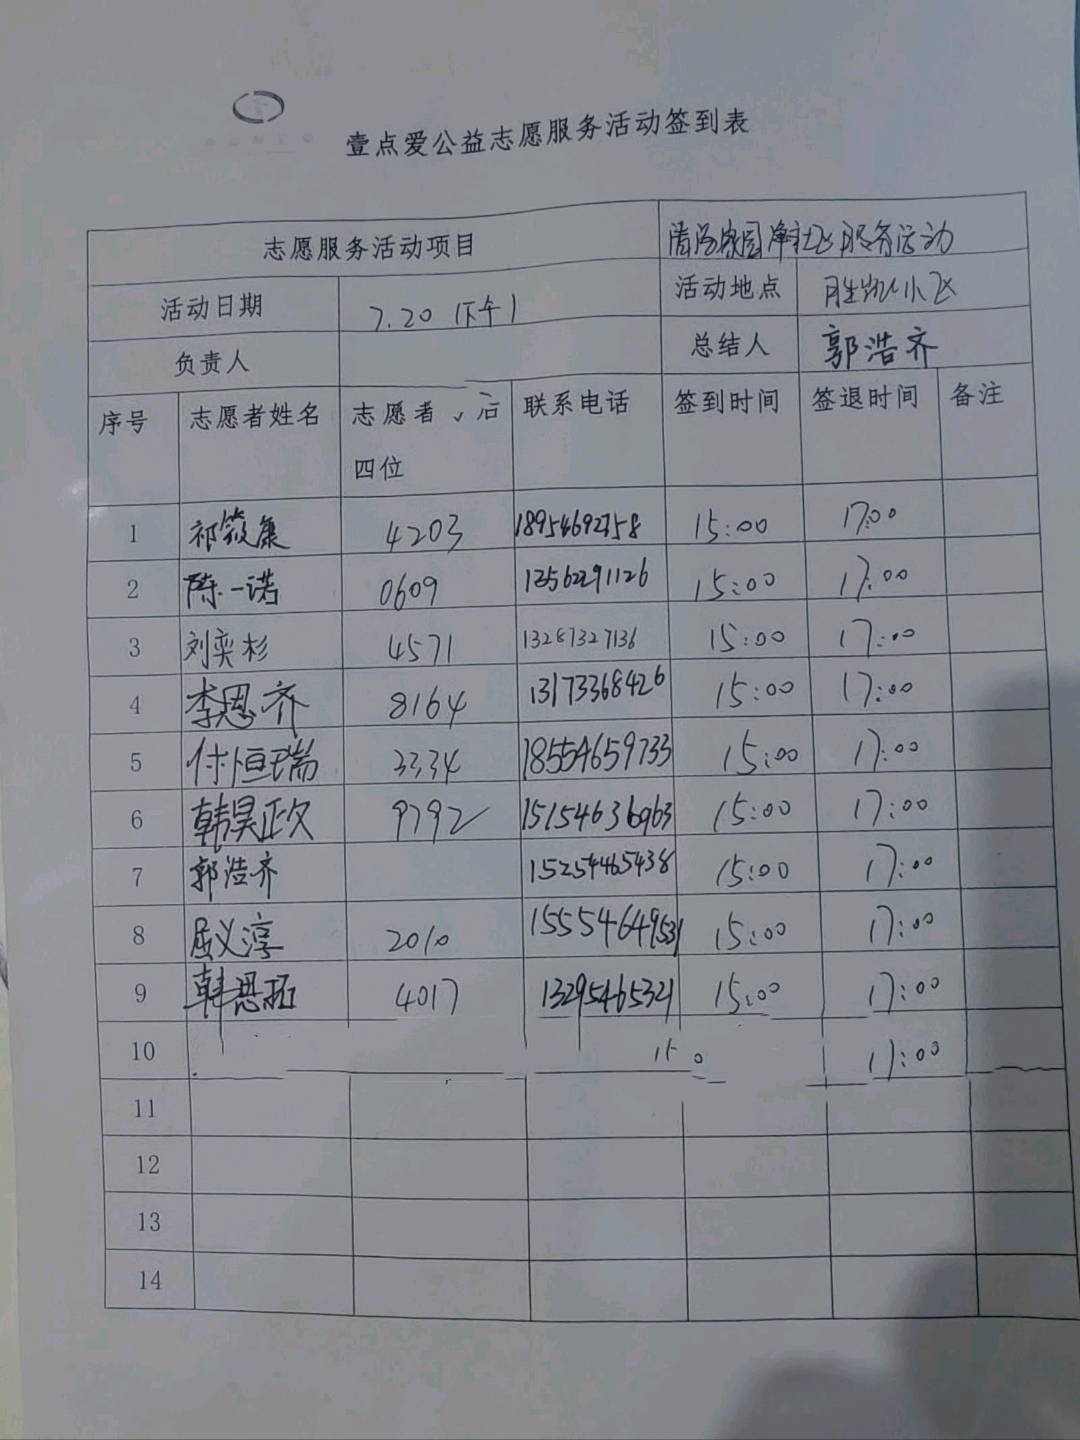 壹点爱公益志愿服务活动签到表
志愿服务活动项目 服务活动
活动日期 7.20(下午) 活动地点 胜凯小区
负责人 总结人 郭浩齐
序号 志愿者姓名 志愿者 后四位 联系电话 签到时间 签退时间 备注
1 祁筱康 4203 18954692758 15:00 17:00
2 陈一诺 0609 13562291126 15:00 17:00
3 刘奕杉 4571 13287327136 15:00 17:00
4 李恩齐 8164 13173368426 15:00 17:00
5 付恒瑞 3334 18554659733 15:00 17:00
6 韩昊政 9792 15154636963 15:00 17:00
7 郭浩齐 15254465438 15:00 17:00
8 屈义淳 2010 15554649531 15:00 17:00
9 韩思拓 4017 13295465321 15:00 17:00
10 17:00
11
12
13
14